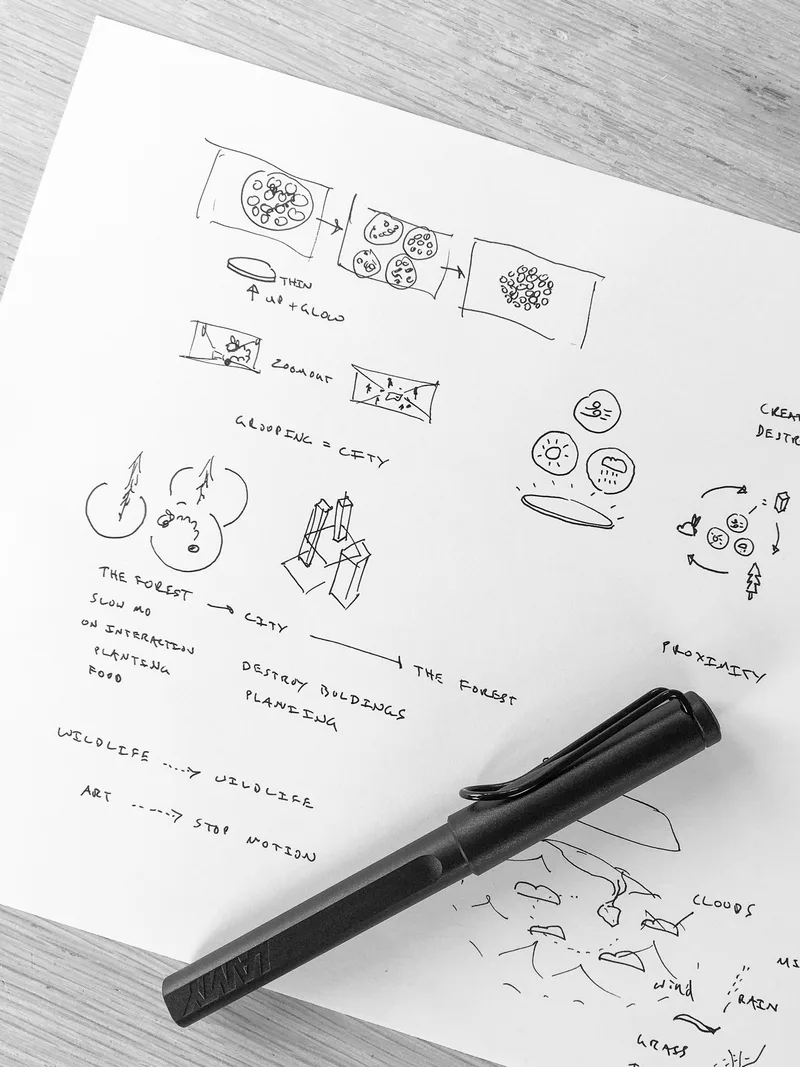 THIN
UP + GLOW
ZOOMOUT
GROUPING = CITY
CREA
DESTR
THE FOREST
SLOW MO
ON INTERACTION
PLANTING
FOOD
CITY
DESTROY BULDINGS
PLANTING
THE FOREST
PROXIMITY
WILDLIFE ----> WILDLIFE
ART -----> STOP MOTION
LAMY
CLOUDS
wind
RAIN
MI
GRASS